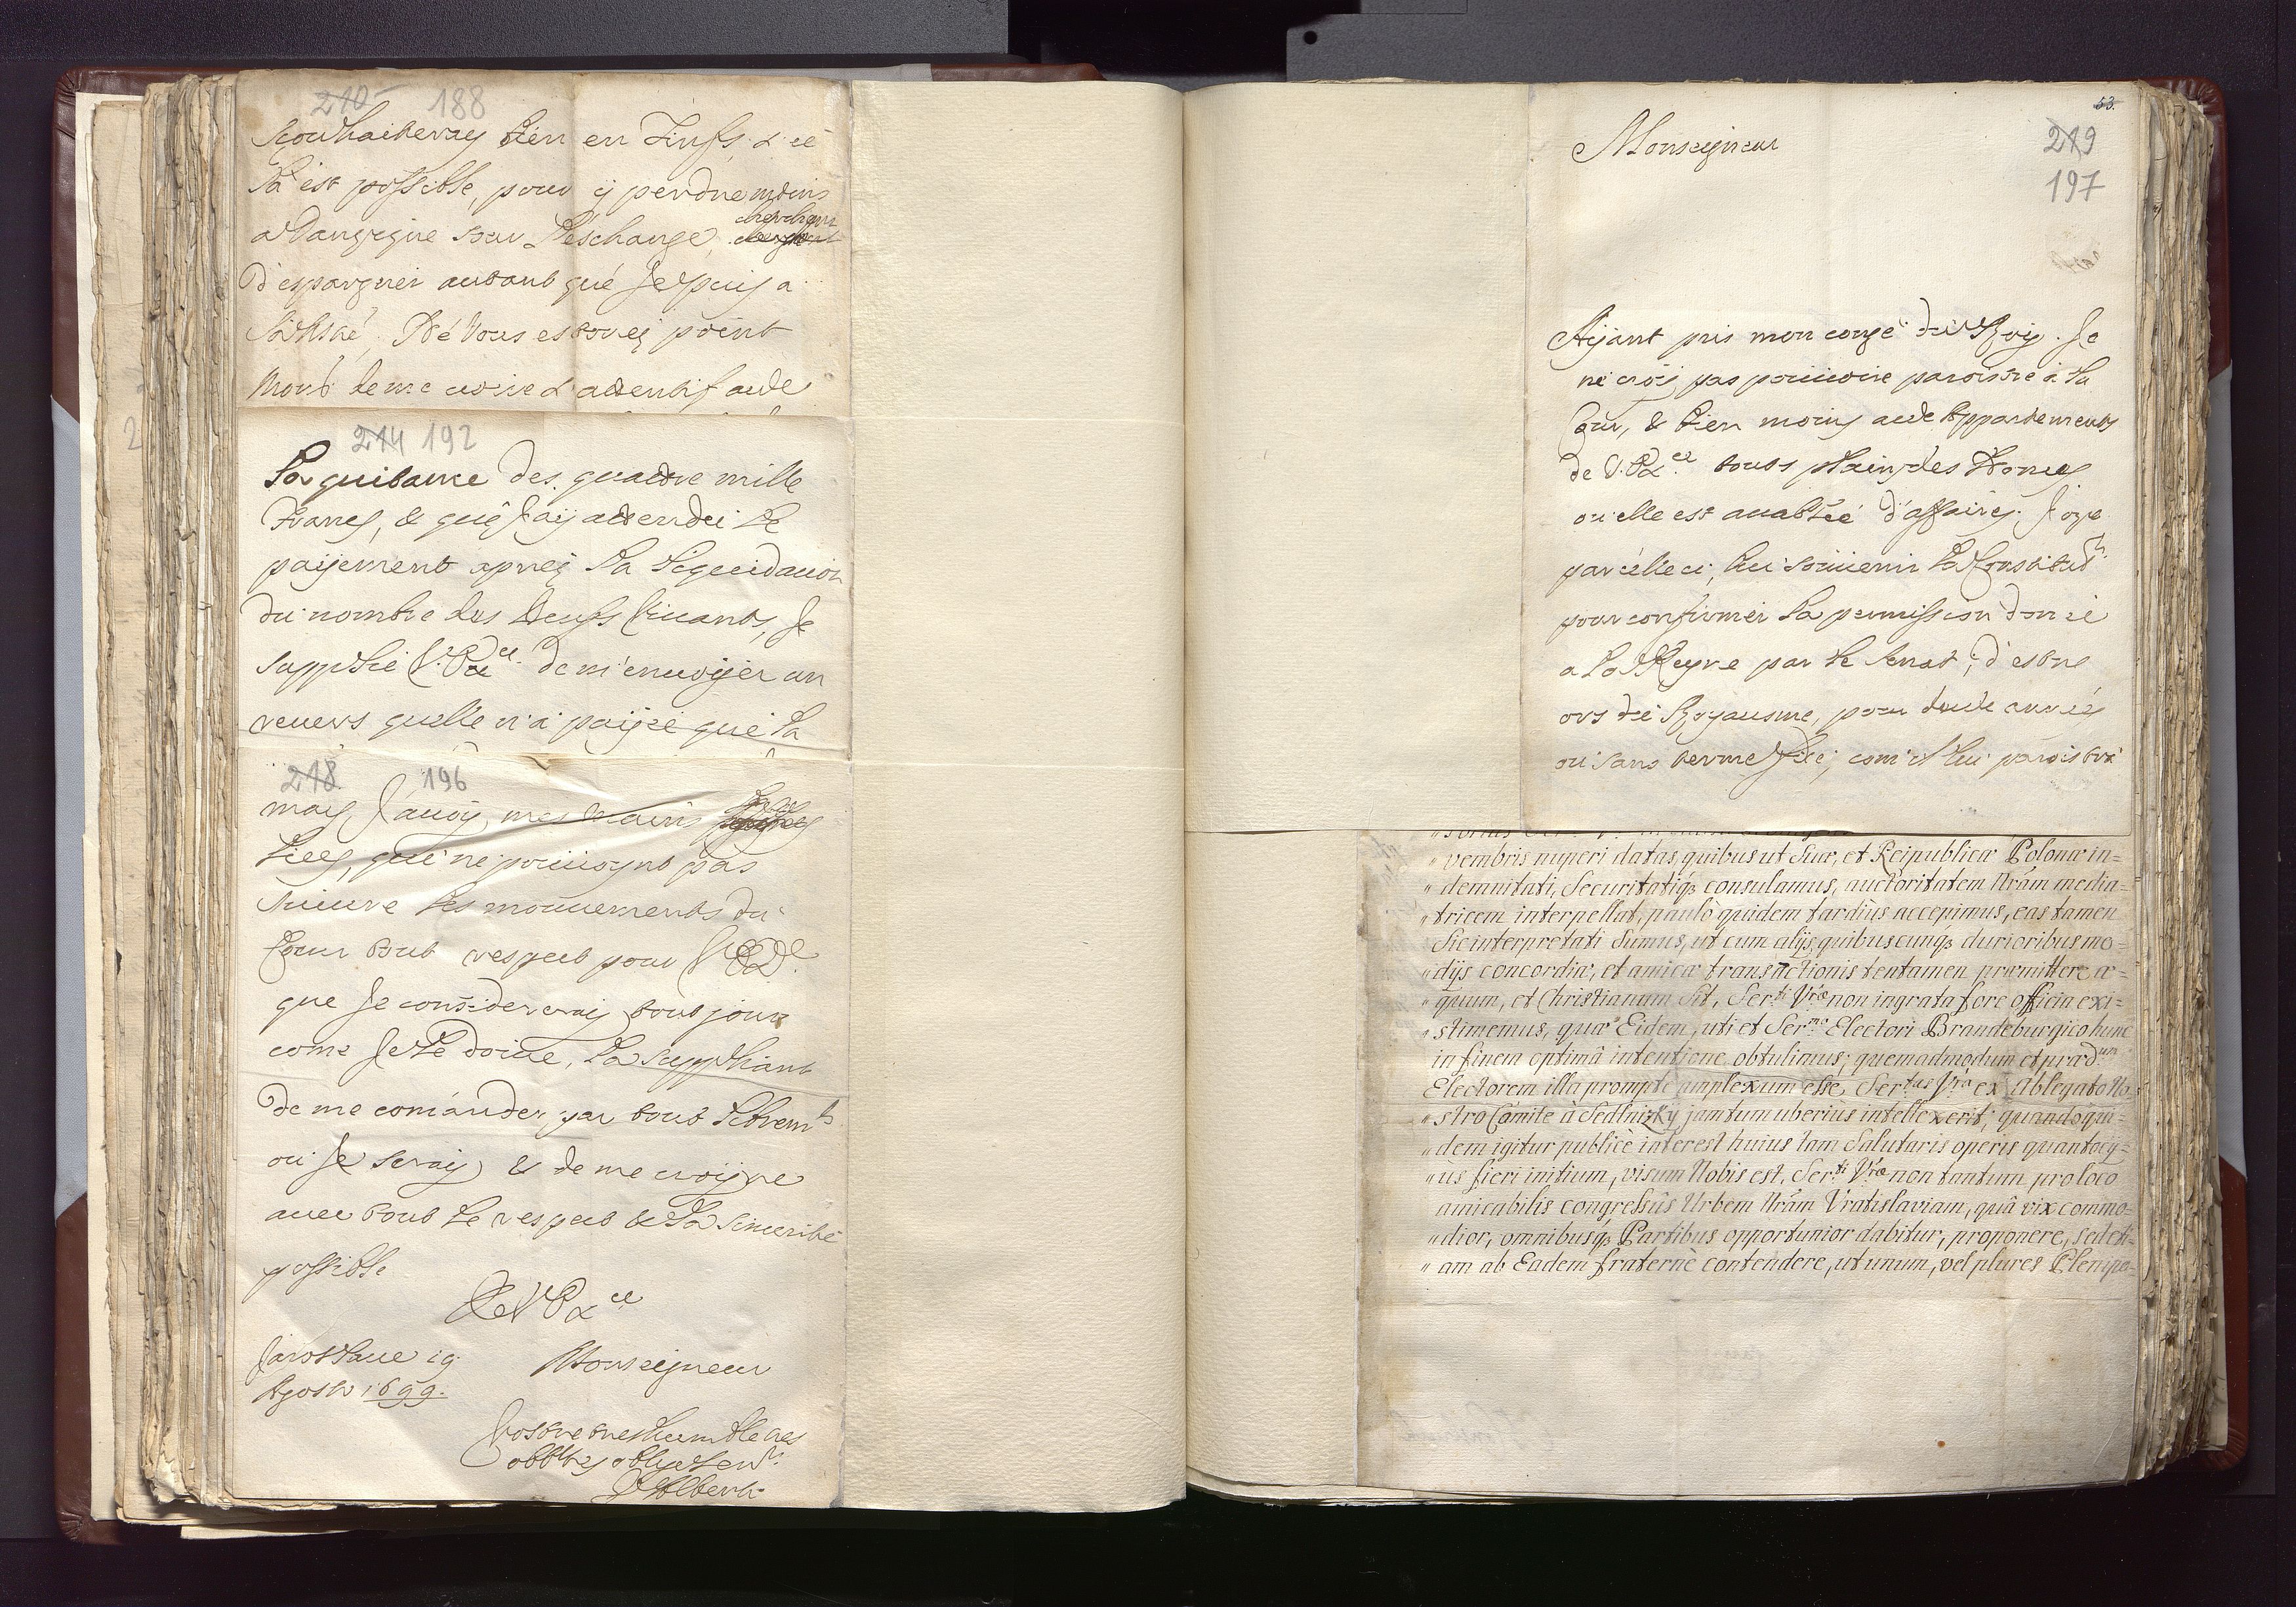 210 188
souhaiteray bien en Tinfs, & ce
la est possible, pour ÿ perdre moins
a l'eschange, cherchant
d'espargner autant qué Je puis a
Né Vous estonnez point
Mons.r de me croire d'attentif aude
214 192
La quitance des quattre mille
Francs, & qué J'aÿ attendu le
paÿement aprez la liquidation
du nombre des Beufs vivants, Je
supplie V. Ex.ce de m'envoÿer un
revers quelle n'a paÿeé qué la
218 196
mais J'avoÿ mes mains
liées, qué ne pouvoÿnt pas
suivre les mouvements du
Coeur tout respect pour V. Ex.ce
que Je considereraÿ tout jour
come Je le doive, la suppliant
de me comander, par tout
ou Je seraÿ, & de me croÿre
avec tout le respect & la sincerité
possible
De V. Ex.ce
Jaroslave 19 Monseigneur
Agosto 1699.
Vostre tres humble tres
53.
Monseigneur 219
197
Aÿant pris mon congé du Roÿ. Je
ne croÿ pas pouvoire paroistre à la
Cour, & bien moins aude Appartements
de V. Ex.ce touts plain des Homes
ou elle est acablée d'affaires. J'oze
par celle ci, lui souvenir
pour confirmer la permission donné
a La Reyne par le Senat, d'estre
ors du Royausme, pour deude années
ou sans terme fixé, com'il lui paroistra
„ vembris nuperi datas, quibus ut Suæ, et Reipublicæ Polonæ in=
„ demnitati, Securitatiq3 consulamus, auctoritatem Nrãm media=
„ tricem interpellat, paulò quidem tardius accepimus, eas tamen
„ Sic interpretati Sumus, ut cum alijs, quibuscunq3 durioribus mo=
„ dijs concordiæ, et amicæ transactionis tentamen præmittere æ=
„ quum, et Christianum Sit, Ser.ti Vræ non ingrata fore officia exi=
„ stimemus, quæ Eidem, uti et Ser.mo Electori Brandeburgico hunc
in finem optimâ intentione obtulimus; quemadmodum et præd.um
Electorem illa promptè amplexum esse, Ser.tas Vra ex Ablegato No=
„ stro Comite à Sedlnizky jam tum uberius intellexerit; quandoqui=
„ dem igitur publicè interest huius tam Salutaris operis quantocy=
„ us fieri initium, visum Nobis est, Ser.ti Vræ non tantum pro loco
amicabilis congressûs Urbem Nrãm Vratislaviam, quâ vix commo=
„ dior, omnibusq3 Partibus opportunior dabitur, proponere, sed eti=
„ am ab Eadem fraternè contendere, ut unum, vel plures Plenipo=